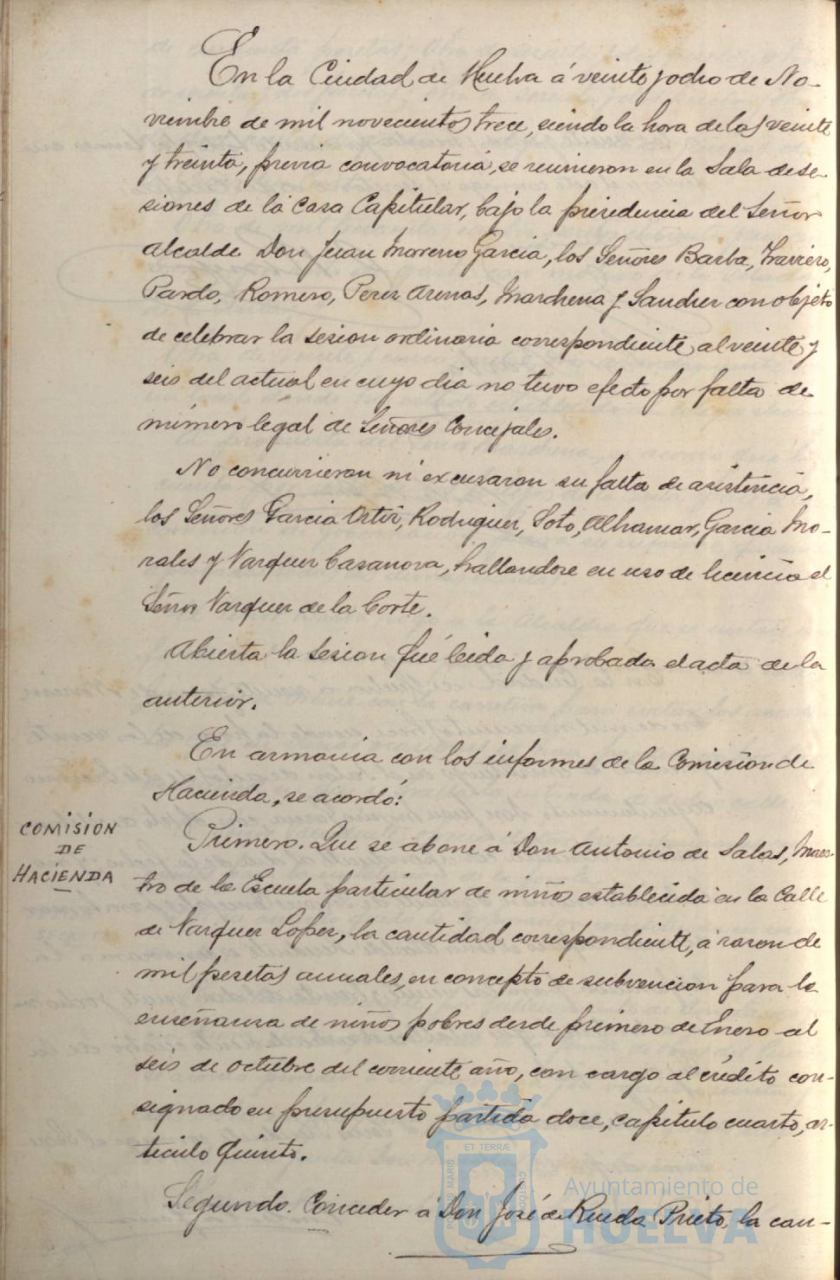 En la Ciudad de Huelva á veinte y ocho de No-
viembre de mil novecientos trece, siendo la hora de las veinte
y treinta, previa convocatoria, se reunieron en la Sala de se-
siones de la Casa Capitular, bajo la presidencia del Señor
Alcalde Don Juan Moreno Garcia, los Señores Barba,
Pardo, Romero, Perez Arenas, Marchena y Sanchez con objeto
de celebrar la sesion ordinaria correspondiente al veinte y
seis del actual en cuyo dia no tuvo efecto por falta de
número legal de Señores Concejales.
No concurrieron ni excusaron su falta de asistencia,
los Señores Garcia Ortiz, Rodriguez, Soto, Alhamar, Garcia Mo-
rales y Vazquez Casanova, hallandose en uso de licencia el
Señor Vazquez de la Corte.
Abierta la sesion fué leida y aprobada el acta de la
anterior.
En armonia con los informes de la Comision de
Hacienda, se acordó:
COMISION
DE
HACIENDA
Primero. Que se abone á Don Antonio de Salas, Maes-
tro de la Escuela particular de niños establecida en la Calle
de Vazquez Lopez, la cantidad correspondiente, á razon de
mil pesetas anuales, en concepto de subvencion para la
enseñanza de niños pobres desde primero de Enero al
seis de Octubre del corriente año, con cargo al crédito con-
signado en presupuesto partida doce, capitulo cuarto, ar-
ticulo quinto.
Segundo. Conceder á Don José de Rueda Prieto, la can-
ET TERRÆ
Ayuntamiento de
HUELVA